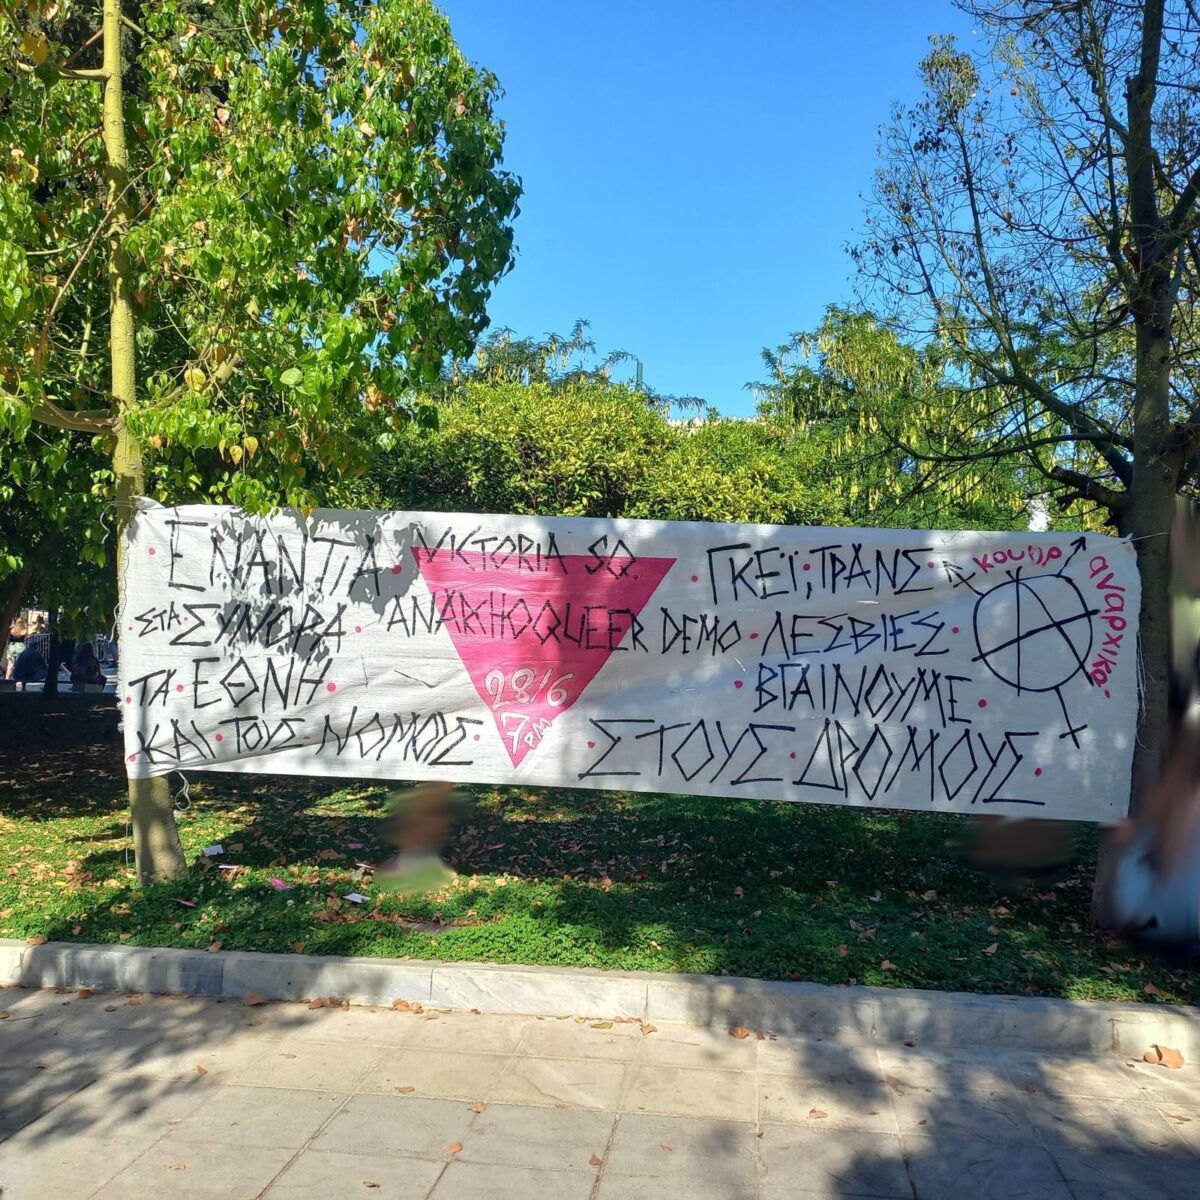 ΕΝΑΝΤΙΑ
ΣΤΑ ΣΥΝΟΡΑ
ΤΑ ΕΘΝΗ
ΚΑΙ ΤΟΥΣ ΝΟΜΟΥΣ
VICTORIA SQ.
ANARCHOQUEER DEMO
28/6
7PM
ΓΚΕΪ, ΤΡΑΝΣ
ΛΕΣΒΙΕΣ
ΒΓΑΙΝΟΥΜΕ
ΣΤΟΥΣ ΔΡΟΜΟΥΣ
κουηρ
αναρχικα